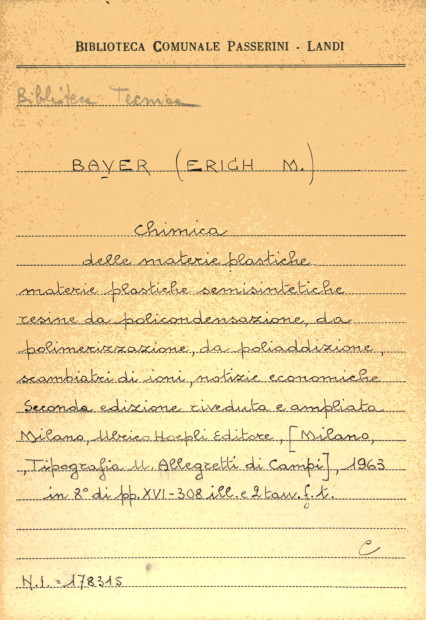 BIBLIOTECA COMUNALE PASSERINI - LANDI
Biblioteca Tecnica
BAYER (ERICH M.)
Chimica
delle materie plastiche
materie plastiche semisintetiche
resine da policondensazione, da
polimerizzazione, da poliaddizione,
scambiatri di ioni, notizie economiche
Seconda edizione riveduta e ampliata
Milano, Ulrico Hoepli Editore, [Milano,
, Tipografia U. Allegretti di Campi], 1963
in 8° di pp. XVI-308 ill. e 2 tav. f. t.
C
N.I. = 178315